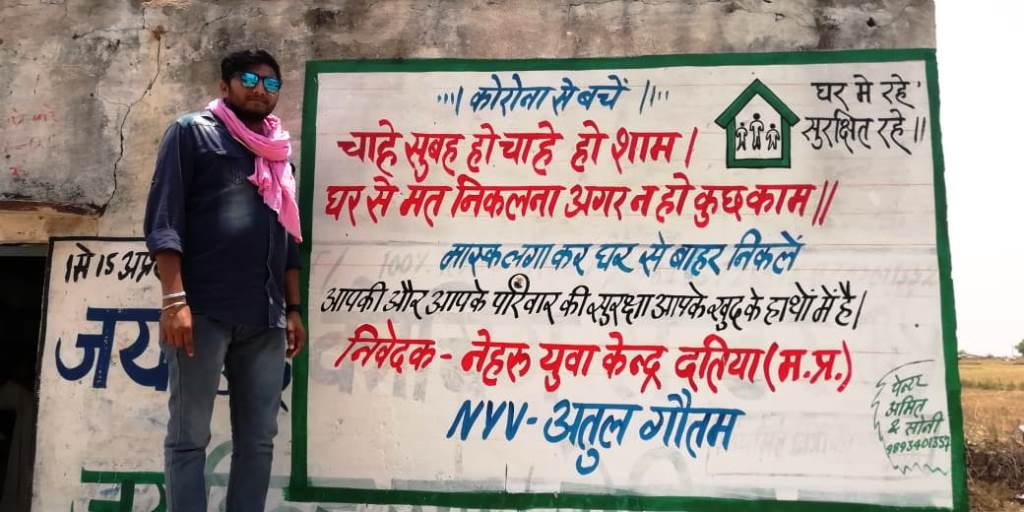 कोरोना से बचें
घर मे रहे
सुरक्षित रहे ॥
चाहे सुबह हो चाहे हो शाम ।
घर से मत निकलना अगर न हो कुछ काम ॥
मास्क लगा कर घर से बाहर निकलें
आपकी और आपके परिवार की सुरक्षा आपके खुद के हाथों में है ।
निवेदक - नेहरू युवा केन्द्र दतिया (म.प्र.)
NYV - अतुल गौतम
पेन्टर
अमित
&
सोनी
1 से 15 अप्रै
जय